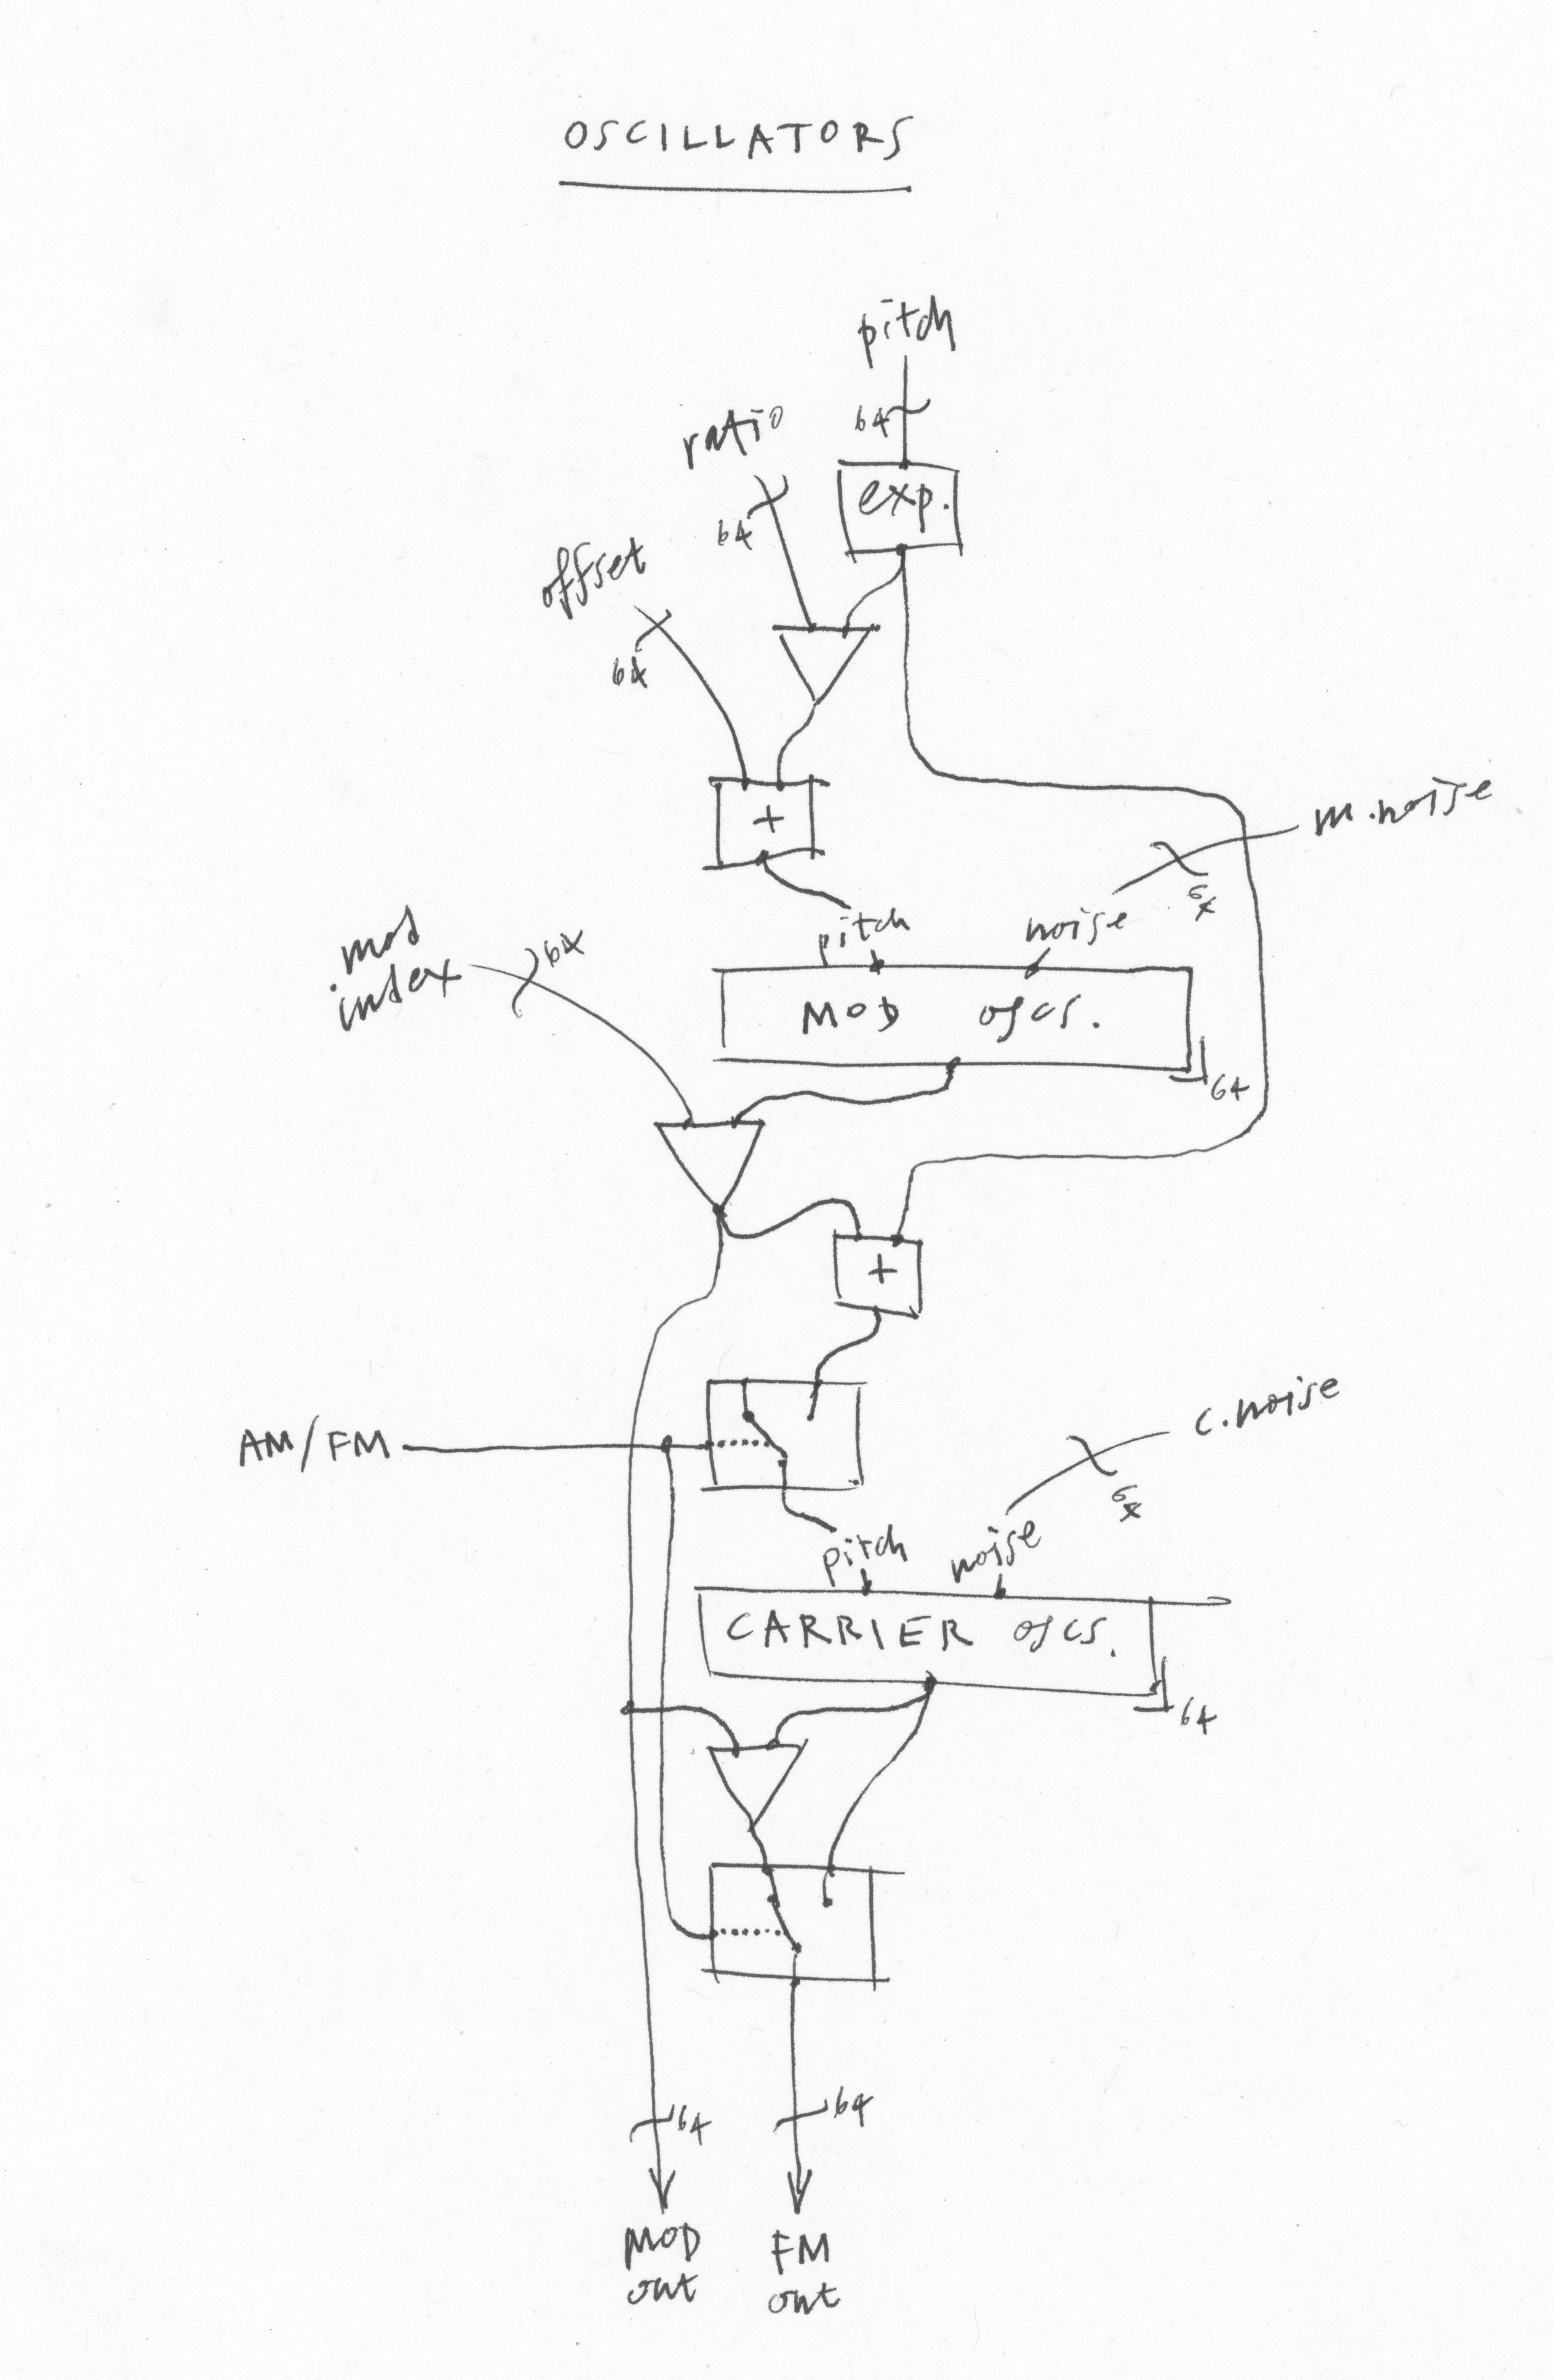 OSCILLATORS
pitch
64
ratio
64
exp.
offset
64
+
m.noise
64
pitch
noise
mod
index
64
MOD oscs.
64
+
AM/FM
c.noise
64
pitch
noise
CARRIER oscs.
64
64
64
MOD
out
FM
out